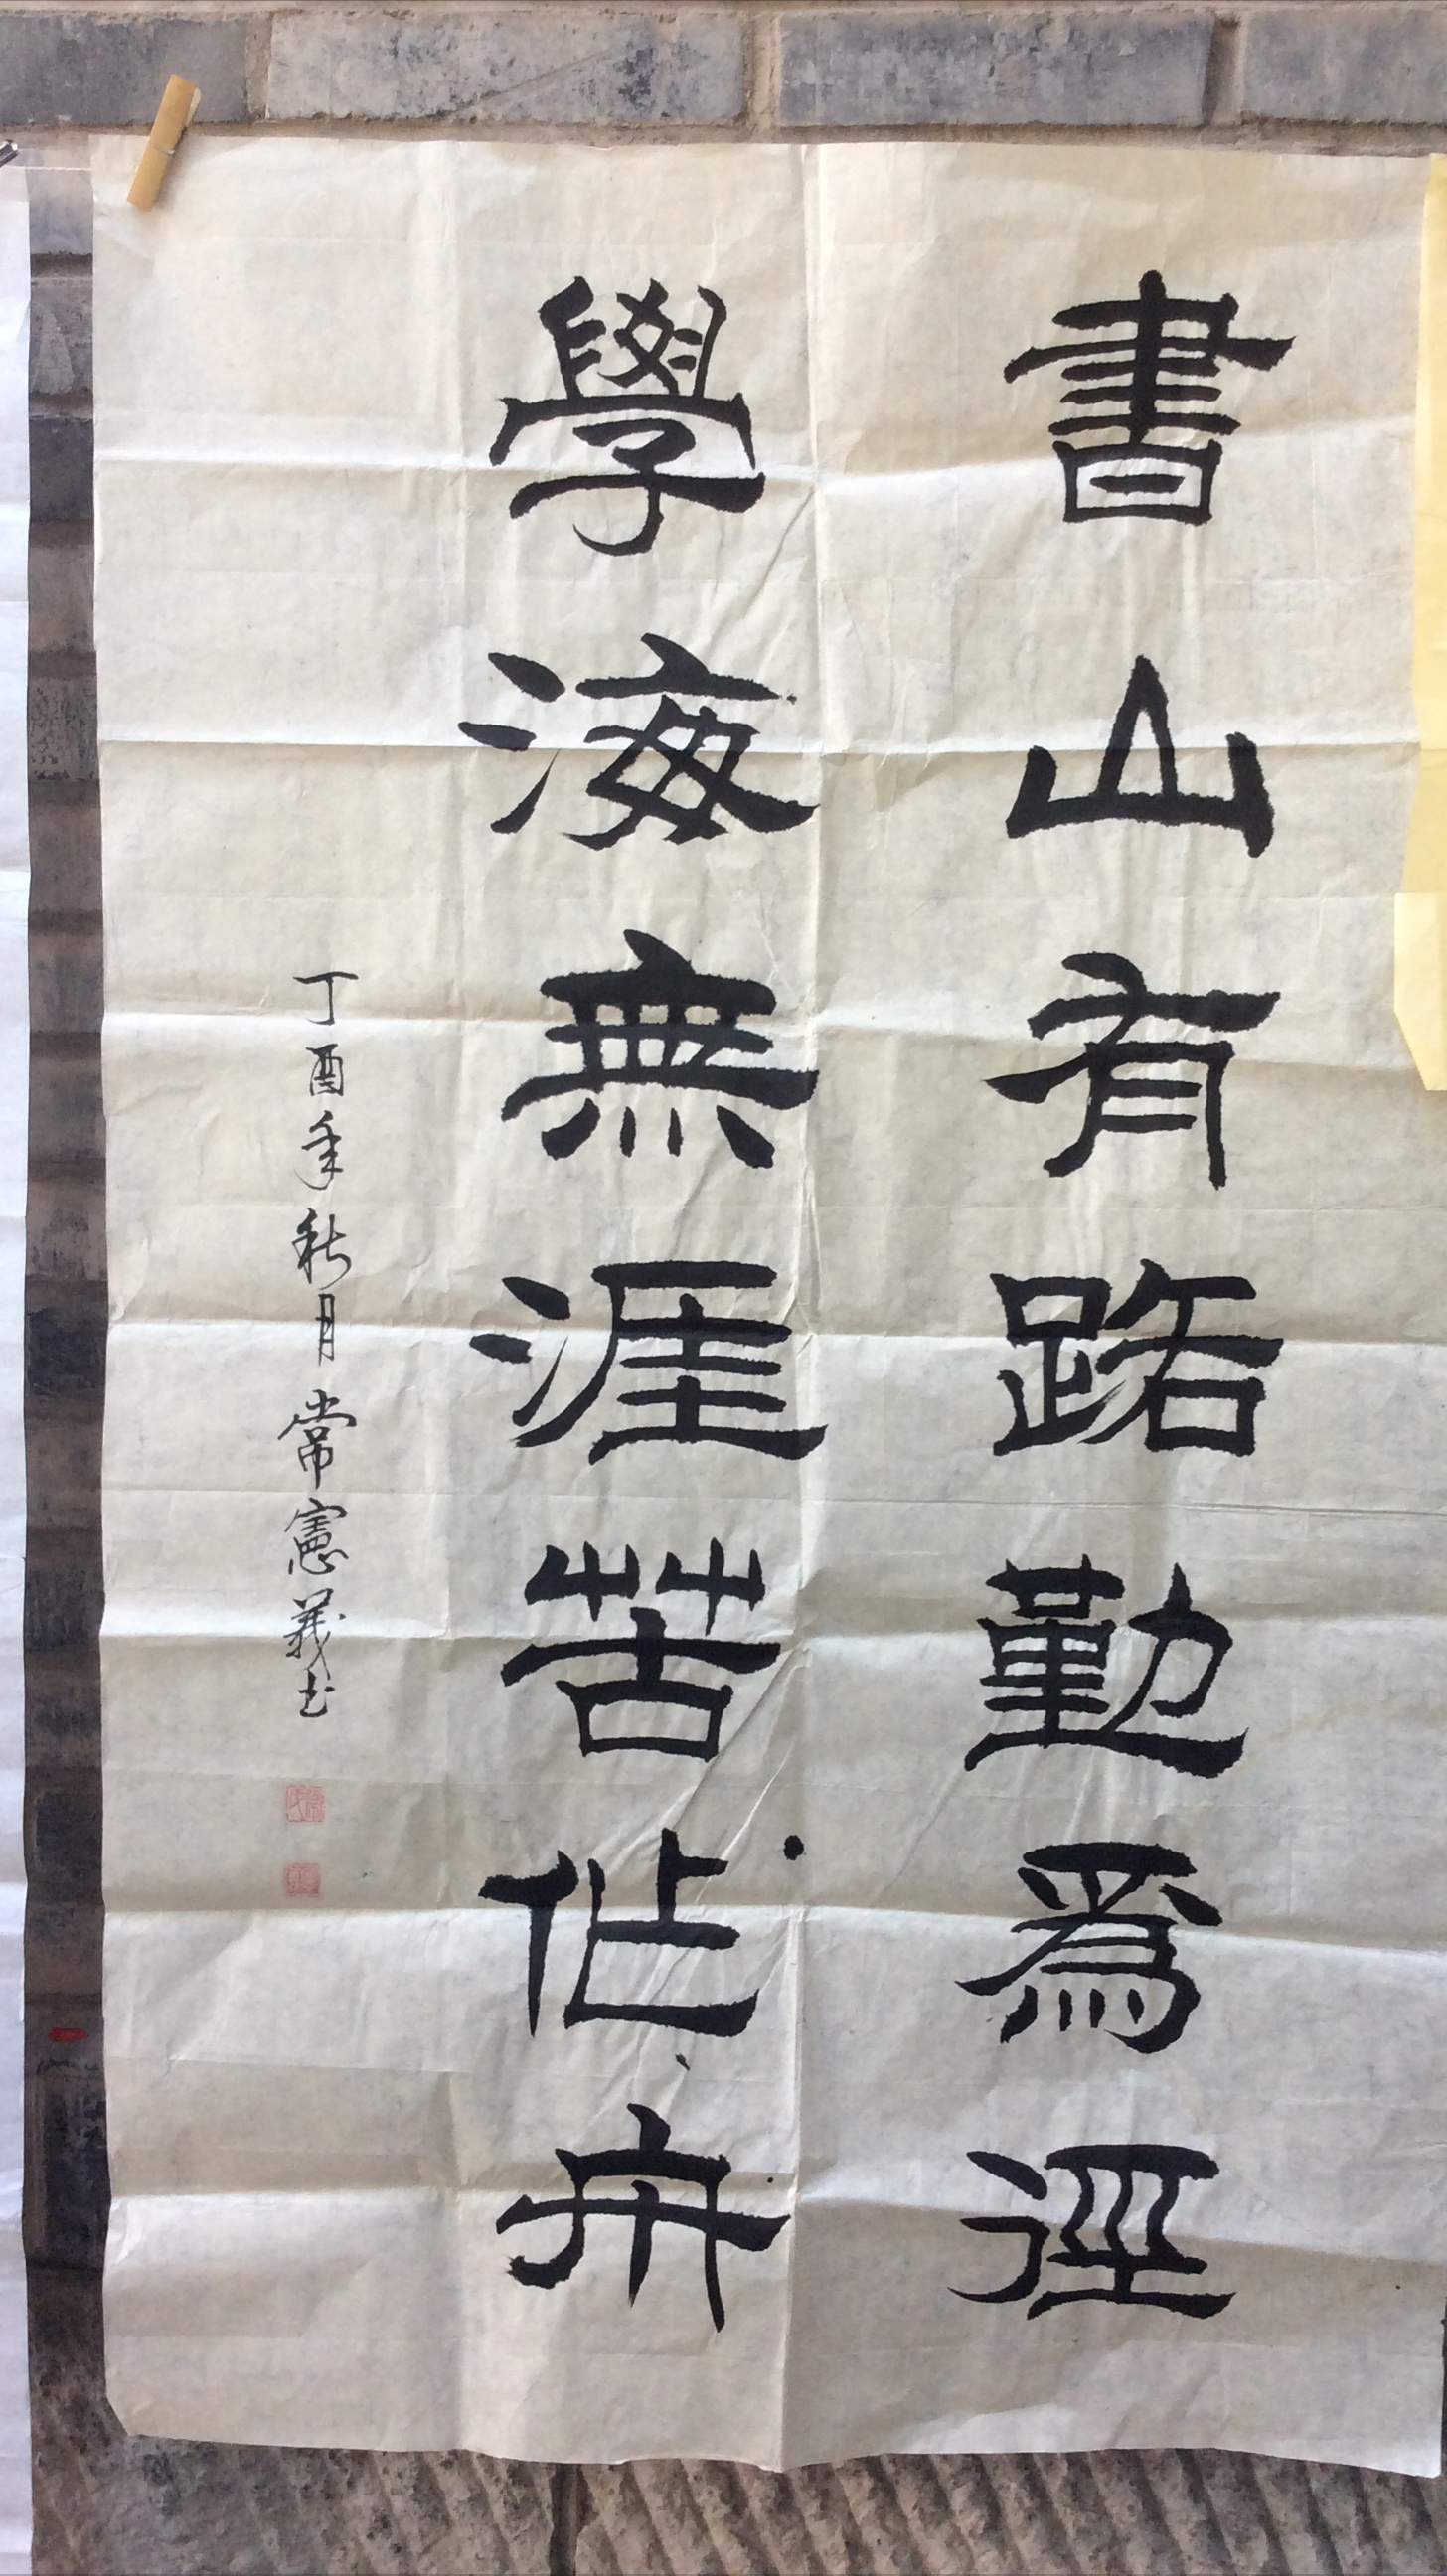 書山有路勤為徑
學海無涯苦作舟
丁酉年秋月常憲義书